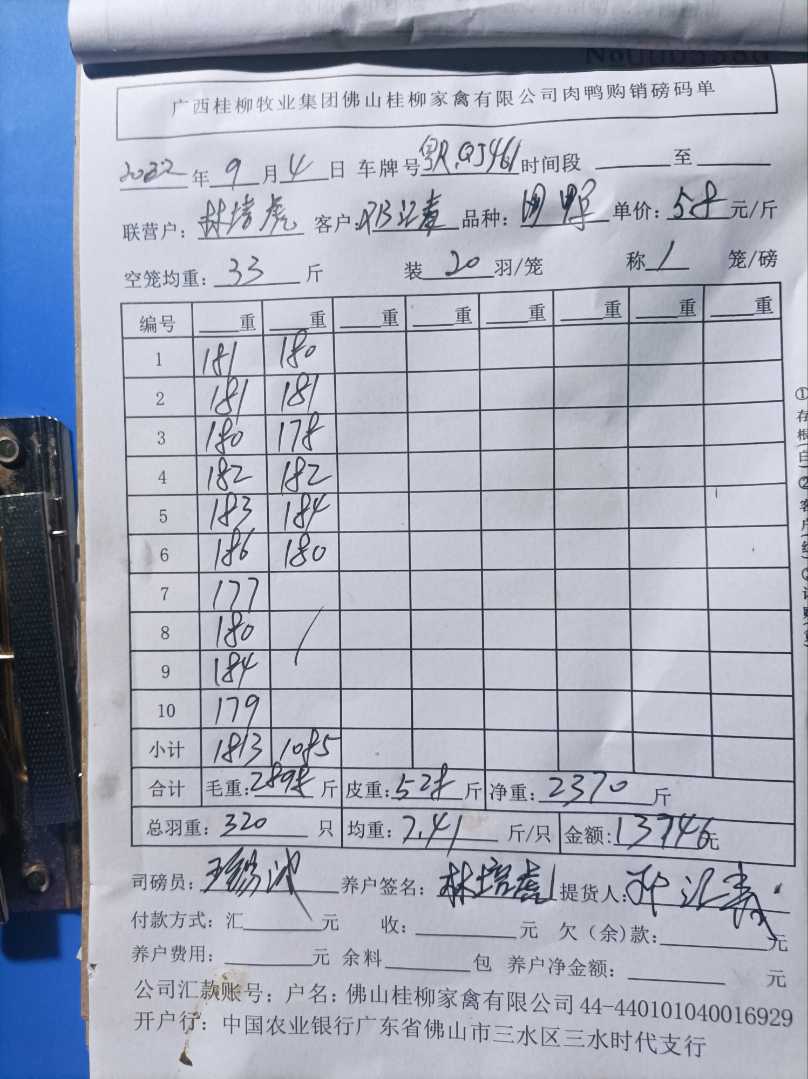 No 0005380
广西桂柳牧业集团佛山桂柳家禽有限公司肉鸭购销磅码单
2022年9月4日 车牌号粤R.QJ461时间段 至
联营户：林培虎 客户: 品种：肉鸭 单价：5.8元/斤
空笼均重：33斤 装20羽/笼 称1笼/磅
编号 重 重 重 重 重 重 重 重
1 181 180
2 181 181
3 180 178
4 182 182
5 183 184
6 186 180
7 177
8 180
9 184
10 179
小计 1813 1085
合计 毛重:2898斤 皮重:528斤 净重:2370斤
总羽重：320只 均重：7.41斤/只 金额:13746元
司磅员： 养户签名：林培虎 提货人：
付款方式：汇 元 收： 元 欠（余)款: 元
养户费用： 元 余料 包 养户净金额： 元
公司汇款账号；户名：佛山桂柳家禽有限公司 44-440101040016929
开户行：中国农业银行广东省佛山市三水区三水时代支行
①存根(白)②客户(红)③